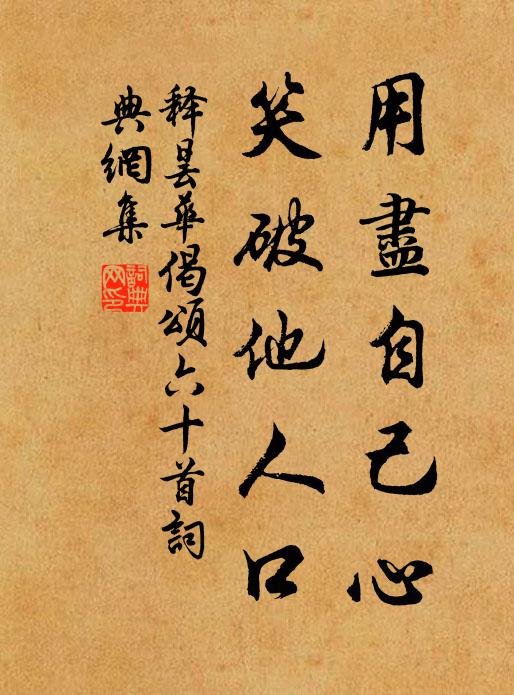 用盡自己心
笑破他人口
释昙華偈頌六十首詞
典網集
詞典
网印